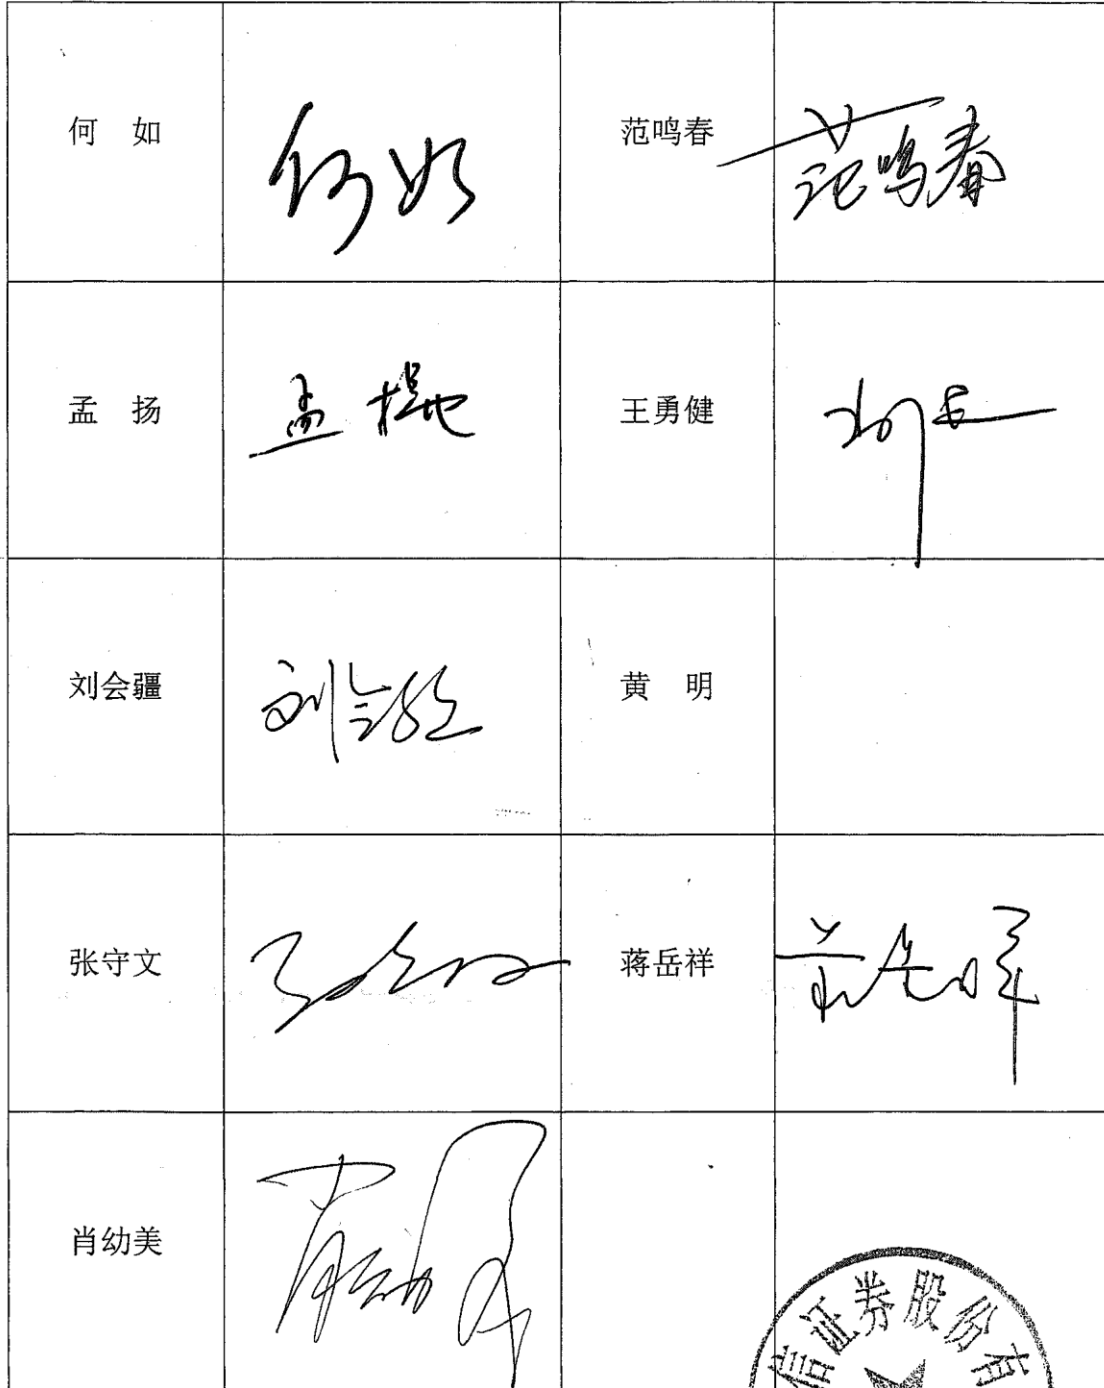 何 如 何如 范鸣春 范鸣春
孟 扬 孟扬 王勇健
刘会疆 刘会疆 黄 明
张守文 蒋岳祥
肖幼美
信证券股份有